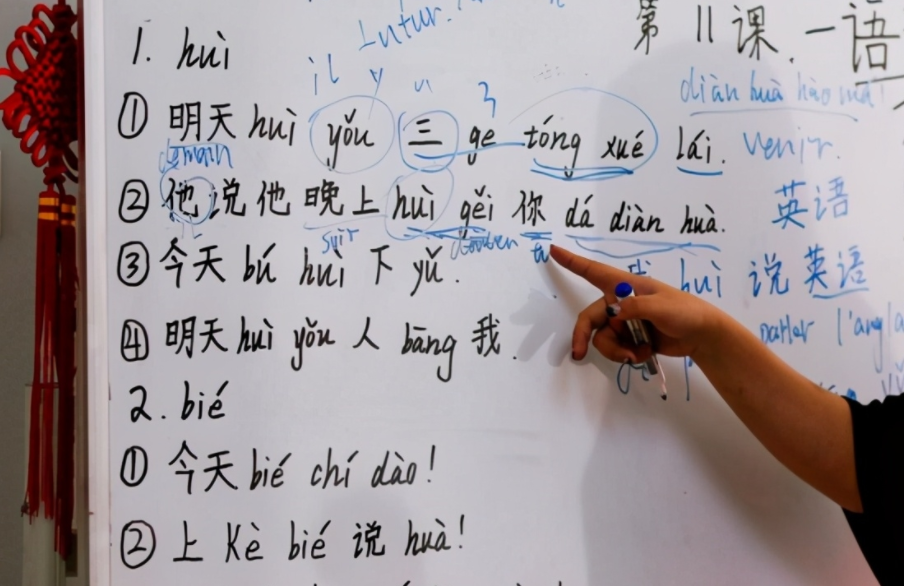 第 11 课. 一语
1. huì
diàn huà hào mǎ!
① 明天 huì yǒu 三 ge tóng xué lái. venir.
demain
② 他说他晚上 huì gěi 你 dá diàn huà. 英语
soir tu
③ 今天 bú huì 下 yǔ. huì 说英语
④ 明天 huì yǒu 人 bāng 我. parler l'angla
2. bié
① 今天 bié chí dào!
② 上 Kè bié 说 huà!